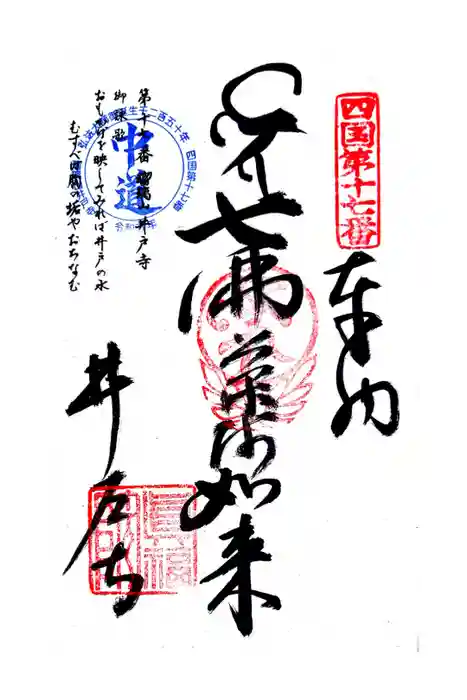 四国第十七番
奉納
七佛薬師如来
井戸寺
第十七番 瑠璃山 井戸寺
御詠歌
おもかげを映してみれば井戸の水
むすべば胸の垢やおちなむ
中道
生千二百五十年 四国第十七番